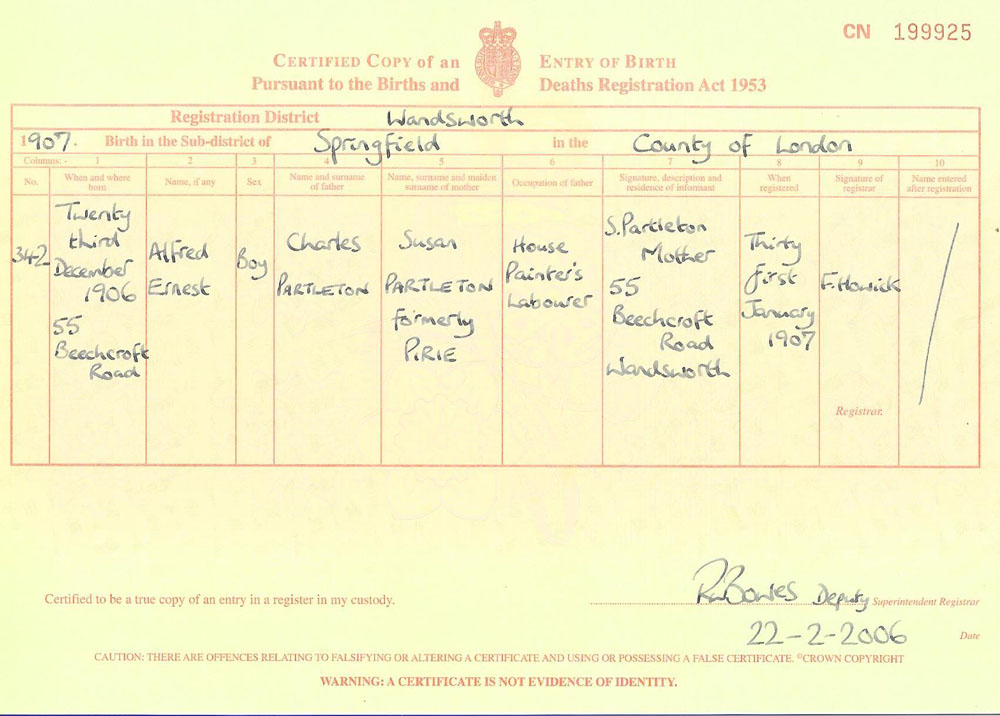 CN 199925
CERTIFIED COPY OF AN ENTRY OF BIRTH
Pursuant to the Births and Deaths Registration Act 1953
Registration District Wandsworth
1907. Birth in the Sub-district of Springfield in the County of London
Columns:- 1 2 3 4 5 6 7 8 9 10
No.
When and where
born
Name, if any
Sex
Name and surname
of father
Name, surname and maiden
surname of mother
Occupation of father
Signature, description and
residence of informant
When
registered
Signature of
registrar
Name entered
after registration
342
Twenty
third
December
1906
55
Beechcroft
Road
Alfred
Ernest
Boy
Charles
PARTLETON
Susan
PARTLETON
formerly
PIRIE
House
Painter's
Labourer
S. Partleton
Mother
55
Beechcroft
Road
Wandsworth
Thirty
first
January
1907
F. Howick
Registrar.
Certified to be a true copy of an entry in a register in my custody.
Bowes Deputy Superintendent Registrar
22-2-2006 Date
CAUTION: THERE ARE OFFENCES RELATING TO FALSIFYING OR ALTERING A CERTIFICATE AND USING OR POSSESSING A FALSE CERTIFICATE. ©CROWN COPYRIGHT
WARNING: A CERTIFICATE IS NOT EVIDENCE OF IDENTITY.